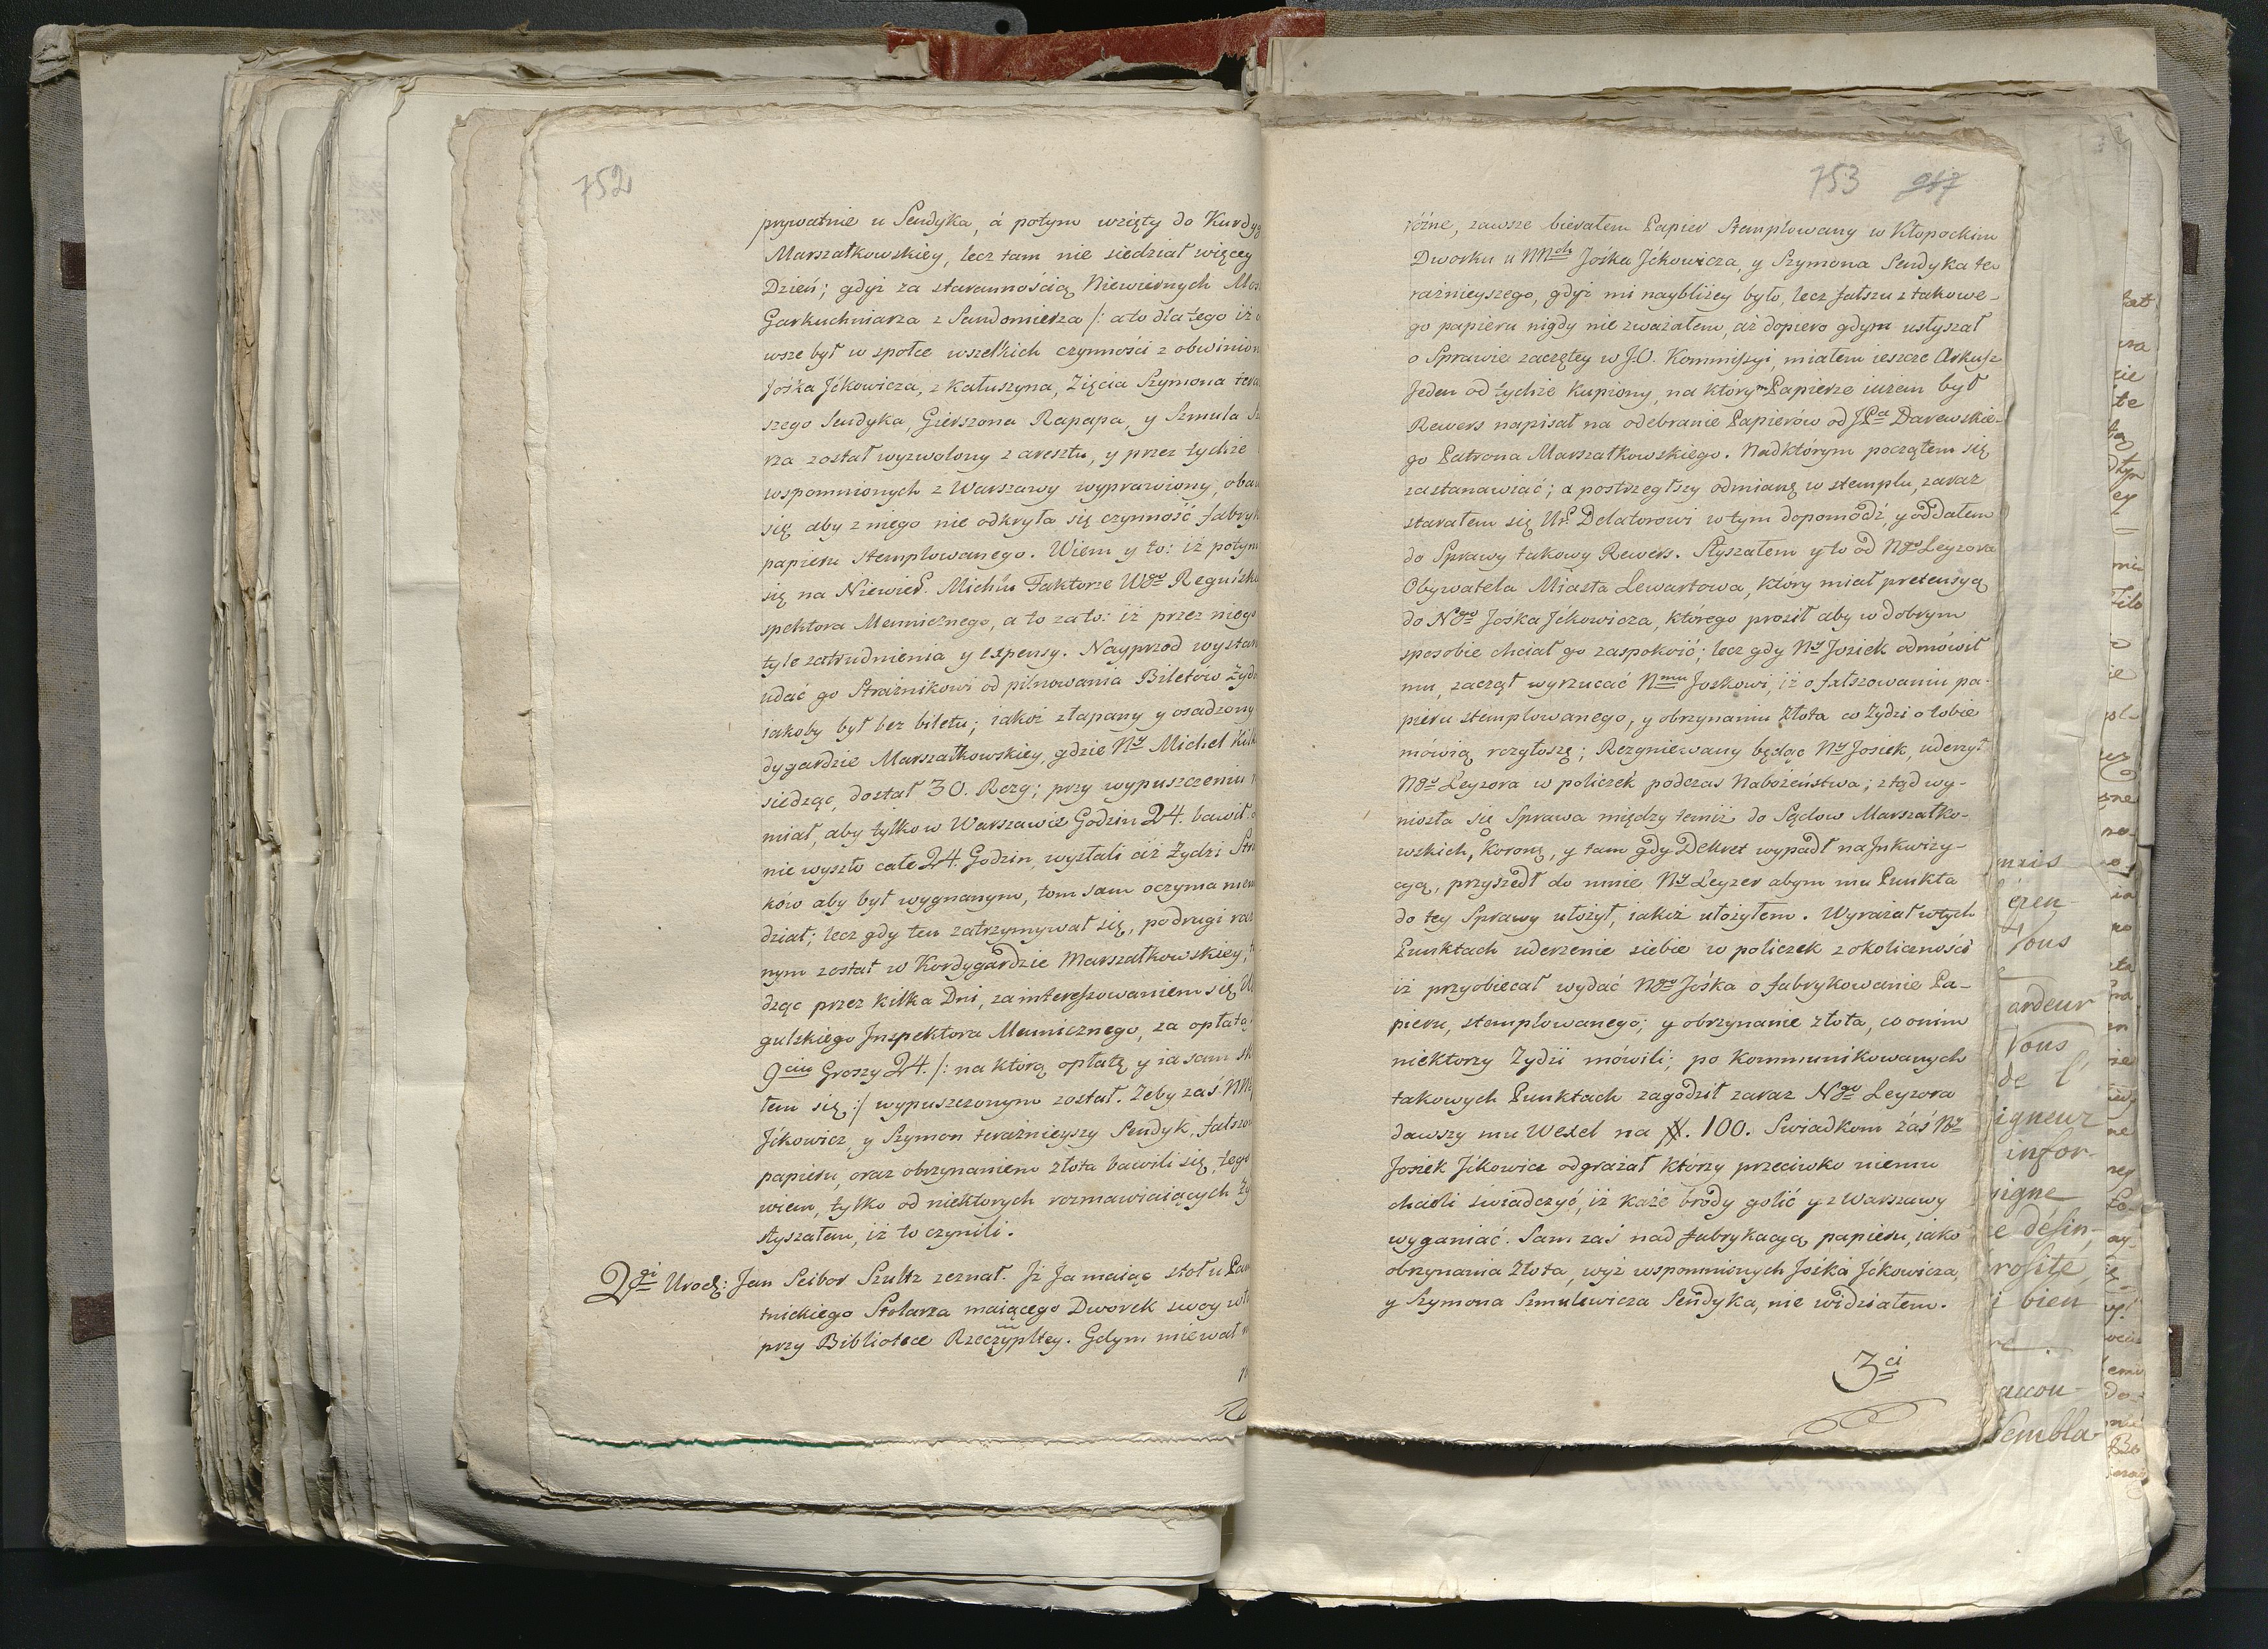 752
prywatnie u Sendyka, á potym wzięty do Kurdy
Marszałkowskiey, lecz tam nie siedział więcey
Dzień; gdyż za starannością Niewiernych
Garkuchniarza z Sandomierza /: a to dla tego iż
wsze był w społce wszelkich czynności z obwinion
Jośka Jćkowicza, z Kałuszyna, Zięcia Szymona tera
szego Sendyka, Gierszona Rapapa, y Szmula
rza został wyzwolony z aresztu, y przez tychże
wspomnionych z Warszawy wyprawiony, oba
się aby z niego nie odkryła się czynność fabryk
papieru stemplowanego. Wiem y to: iż potym
się na Niewier. Michła Faktorze Wgo
spektora Mennicznego, a to za to: iż przez niego
tyle zatrudnienia y expensy. Nayprzod wystar
udać go Strażnikowi od pilnowania Biletów Żyd
iakoby był bez biletu; iakoż złapany y osadzony
dygardzie Marszałkowskiey, gdzie Ny Michel kilk
siedząc, dostał 30. Rozg; przy wypuszczeniu
miał, aby tylko w Warszawie Godzin 24. bawił
nie wyszło całe 24. Godzin, wysłali ciż Żydzi Str
ków aby był wygnanym, tom sam oczyma
dział; lecz gdy ten zatrzymywał się, podrugi raz
nym został w Kordygardzie Marszałkowskiey;
dząc przez kilka Dni, za interessowaniem się
gulskiego Jnspektora Mennicznego, za opłatą
9ciu Groszy 24. /: na którą opłatę y ia sam
łem się :/ wypuszczonym został. Żeby zaś
Jćkowicz, y Szymon teraźnieyszy Sendyk, fałszo
papieru, oraz obrzynaniem złota bawili się, tego
wiem, tylko od niektorych rozmawiaiących Ży
słyszałem, iż to czynili.
2gi Urodz: Jan Scibor Szultz zeznał. Jż Ja maiąc stoł u
tnickiego Stolarza maiącego Dworek swoy
przy Bibliotece Rzeczypltey. Gdym miewał
753 917
różne, zawsze bierałem Papier Stemplowany w Kłopockim
Dworku u NNch Jośka Jćkowicza, y Szymona Sendyka te
raźnieyszego, gdyż mi naybliżey było, lecz fałszu z takowe-
go papieru nigdy nie zważałem, aż dopiero gdym usłyszał
o Sprawie zaczętey w J.O. Kommissyi, miałem ieszcze Arkusz
Jeden od tychże kupiony, na którym Papierze iużem był
Rewers napisał na odebranie Papierów od JPa Darewskie-
go Patrona Marszałkowskiego. Nad którym począłem się
zastanawiać; a postrzegłszy odmianę w stemplu, zaraz
starałem się Ur. Delatorowi w tym dopomódź, y oddałem
do Sprawy takowy Rewers. Słyszałem y to od Ngo Leyzora
Obywatela Miasta Lewartowa, który miał pretensyą
do Ngo Jośka Jćkowicza, którego prosił aby w dobrym
sposobie chciał go zaspokoić; lecz gdy Ny Josiek odmówił
mu, zaczął wyrzucać Nmu Joskowi, iż o fałszowaniu pa-
pieru stemplowanego, y obrzynaniu złota co Żydzi o tobie
mówią rozgłoszę; Rozgniewany będąc Ny Josiek, uderzył
Ngo Leyzora w policzek podczas Nabożeństwa; ztąd wy-
niosła się Sprawa między temiż do Sądow Marszałko-
wskich, Koronę, y tam gdy Dekret wypadł na Jnkwizy-
cyą, przyszedł do mnie Ny Leyzer abym mu Punkta
do tey Sprawy ułożył, iakoż ułożyłem. Wyrażał w tych
Punktach uderzenie siebie w policzek z okoliczności
iż przyobiecał wydać Ngo Jośka o fabrykowanie Pa-
pieru, stemplowanego, y obrzynanie złota, co o nim
niektorzy Żydzi mówili; po kommunikowanych
takowych Punktach zagodził zaraz Ngo Leyzora
dawszy mu Wexel na #. 100. Swiadkom záś Ny
Josiek Jćkowicz odgrażał którzy przeciwko niemu
chcieli swiadczyć, iż każe brody golić y z Warszawy
wyganiać. Sam zaś nad fabrykacyą papieru, iako
obrzynania Złota, wyż wspomnionych Jośka Jćkowicza,
y Szymona Szmulewicza Sendyka, nie widziałem.
3ci
Vous
ardeur
Vous
de l'
igneur
infor-
igne
e désin-
rosité,
i bien
accou-
sembla-